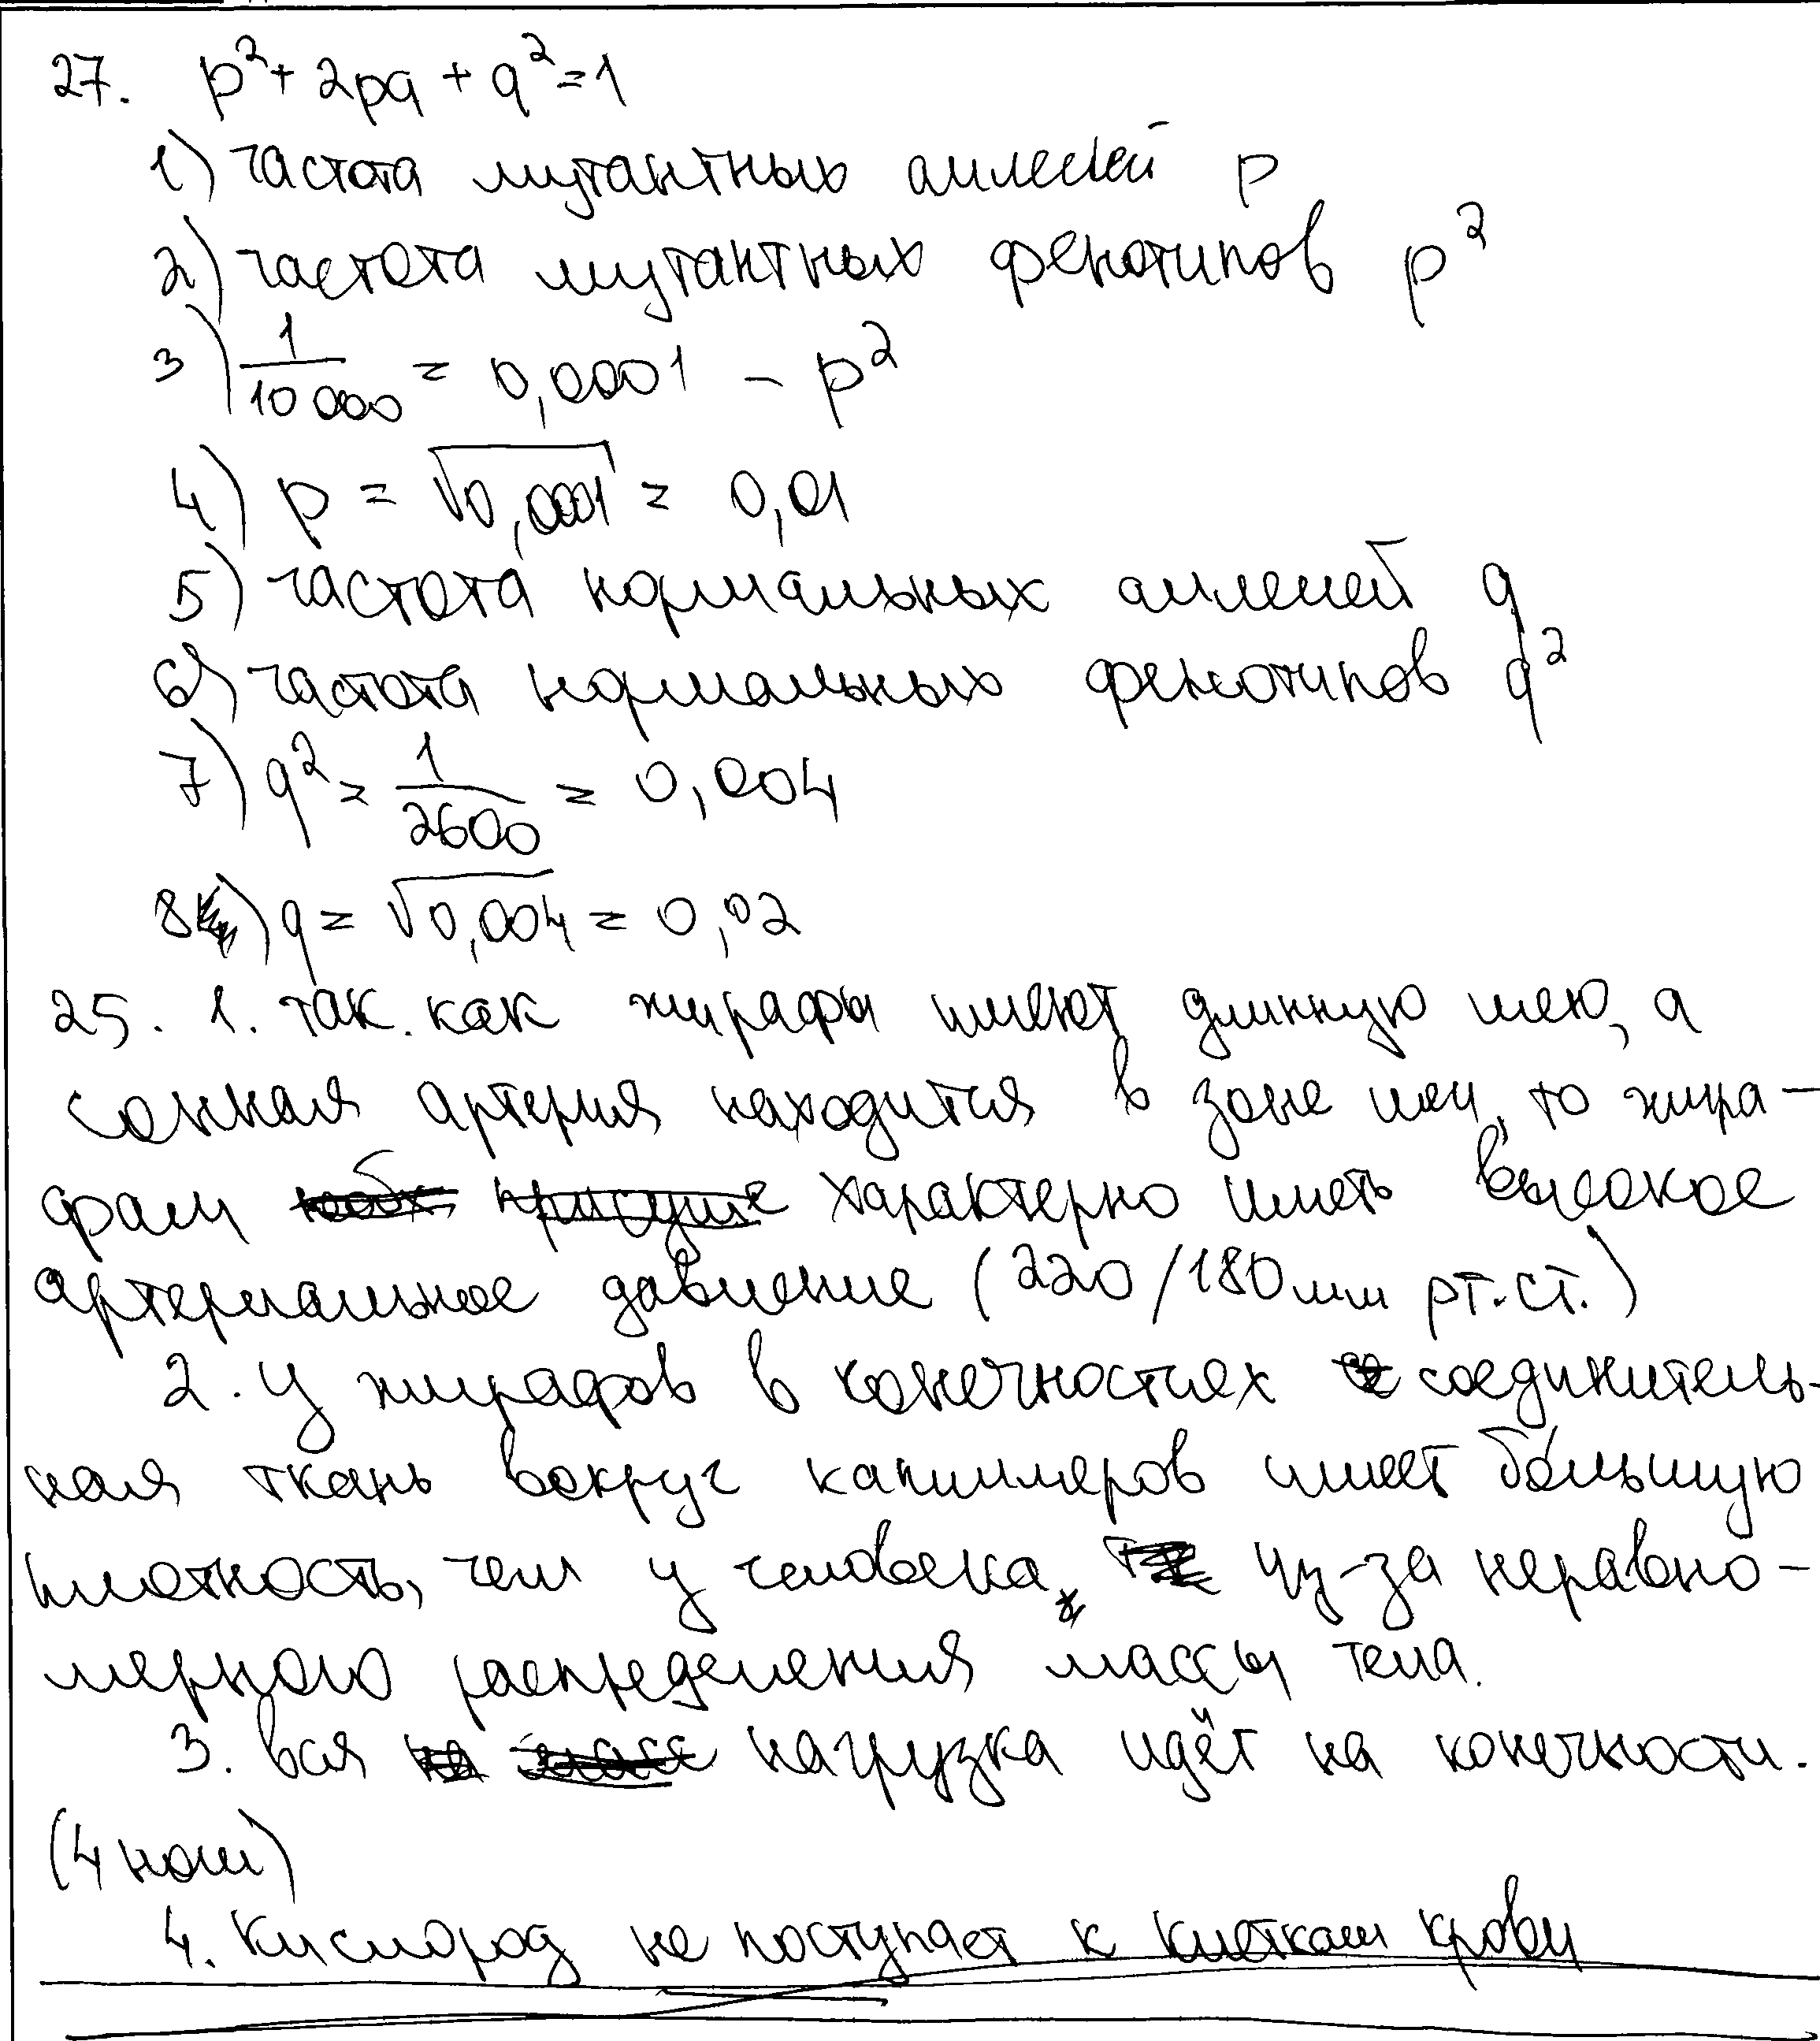 27. p² + 2pq + q² = 1
1) частота мутантных аллелей p
2) частота мутантных фенотипов p²
3) 1/10 000 = 0,0001 – p²
4) p = √0,0001 = 0,01
5) частота нормальных аллелей q
6) частота нормальных фенотипов q²
7) q² = 1/2600 = 0,004
8) q = √0,004 = 0,02
25. 1. так. как жирафы имеют длинную шею, а
сонная артерия находится в зоне шеи, то жира-
фам характерно иметь высокое
артериальное давление (220/180 мм рт.ст.)
2. У жирафов в конечностях соединитель-
ная ткань вокруг капилляров имеет бо́льшую
плотность, чем у человека, из-за неравно-
мерного распределения массы тела.
3. вся нагрузка идёт на конечности.
(4 ноги)
4. Кислород не поступает к клеткам крови